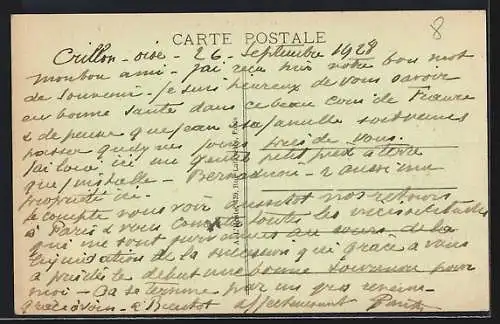 8
CARTE POSTALE
Crillon - oise - 26 - Septembre 1928
mon bon ami - j'ai reçu hier votre bon mot
de Souvenir - Je suis heureux de vous savoir
en bonne santé dans ce beau coin de France
& de penser que Jean & sa famille sont venus
passer quelques jours près de vous.
J'ai loué ici un petit pied à terre
que j'installe - a aussi une
propriété ici.
Je compte vous voir aussitôt nos retours
à Paris & vous toutes les vicissitudes
qui me sont au cours de la
liquidation de la succession qui grâce à vous
a dès le début une bonne pour
moi - Ça se termine par un gros
grâce à vous - à Bientôt affectueusement